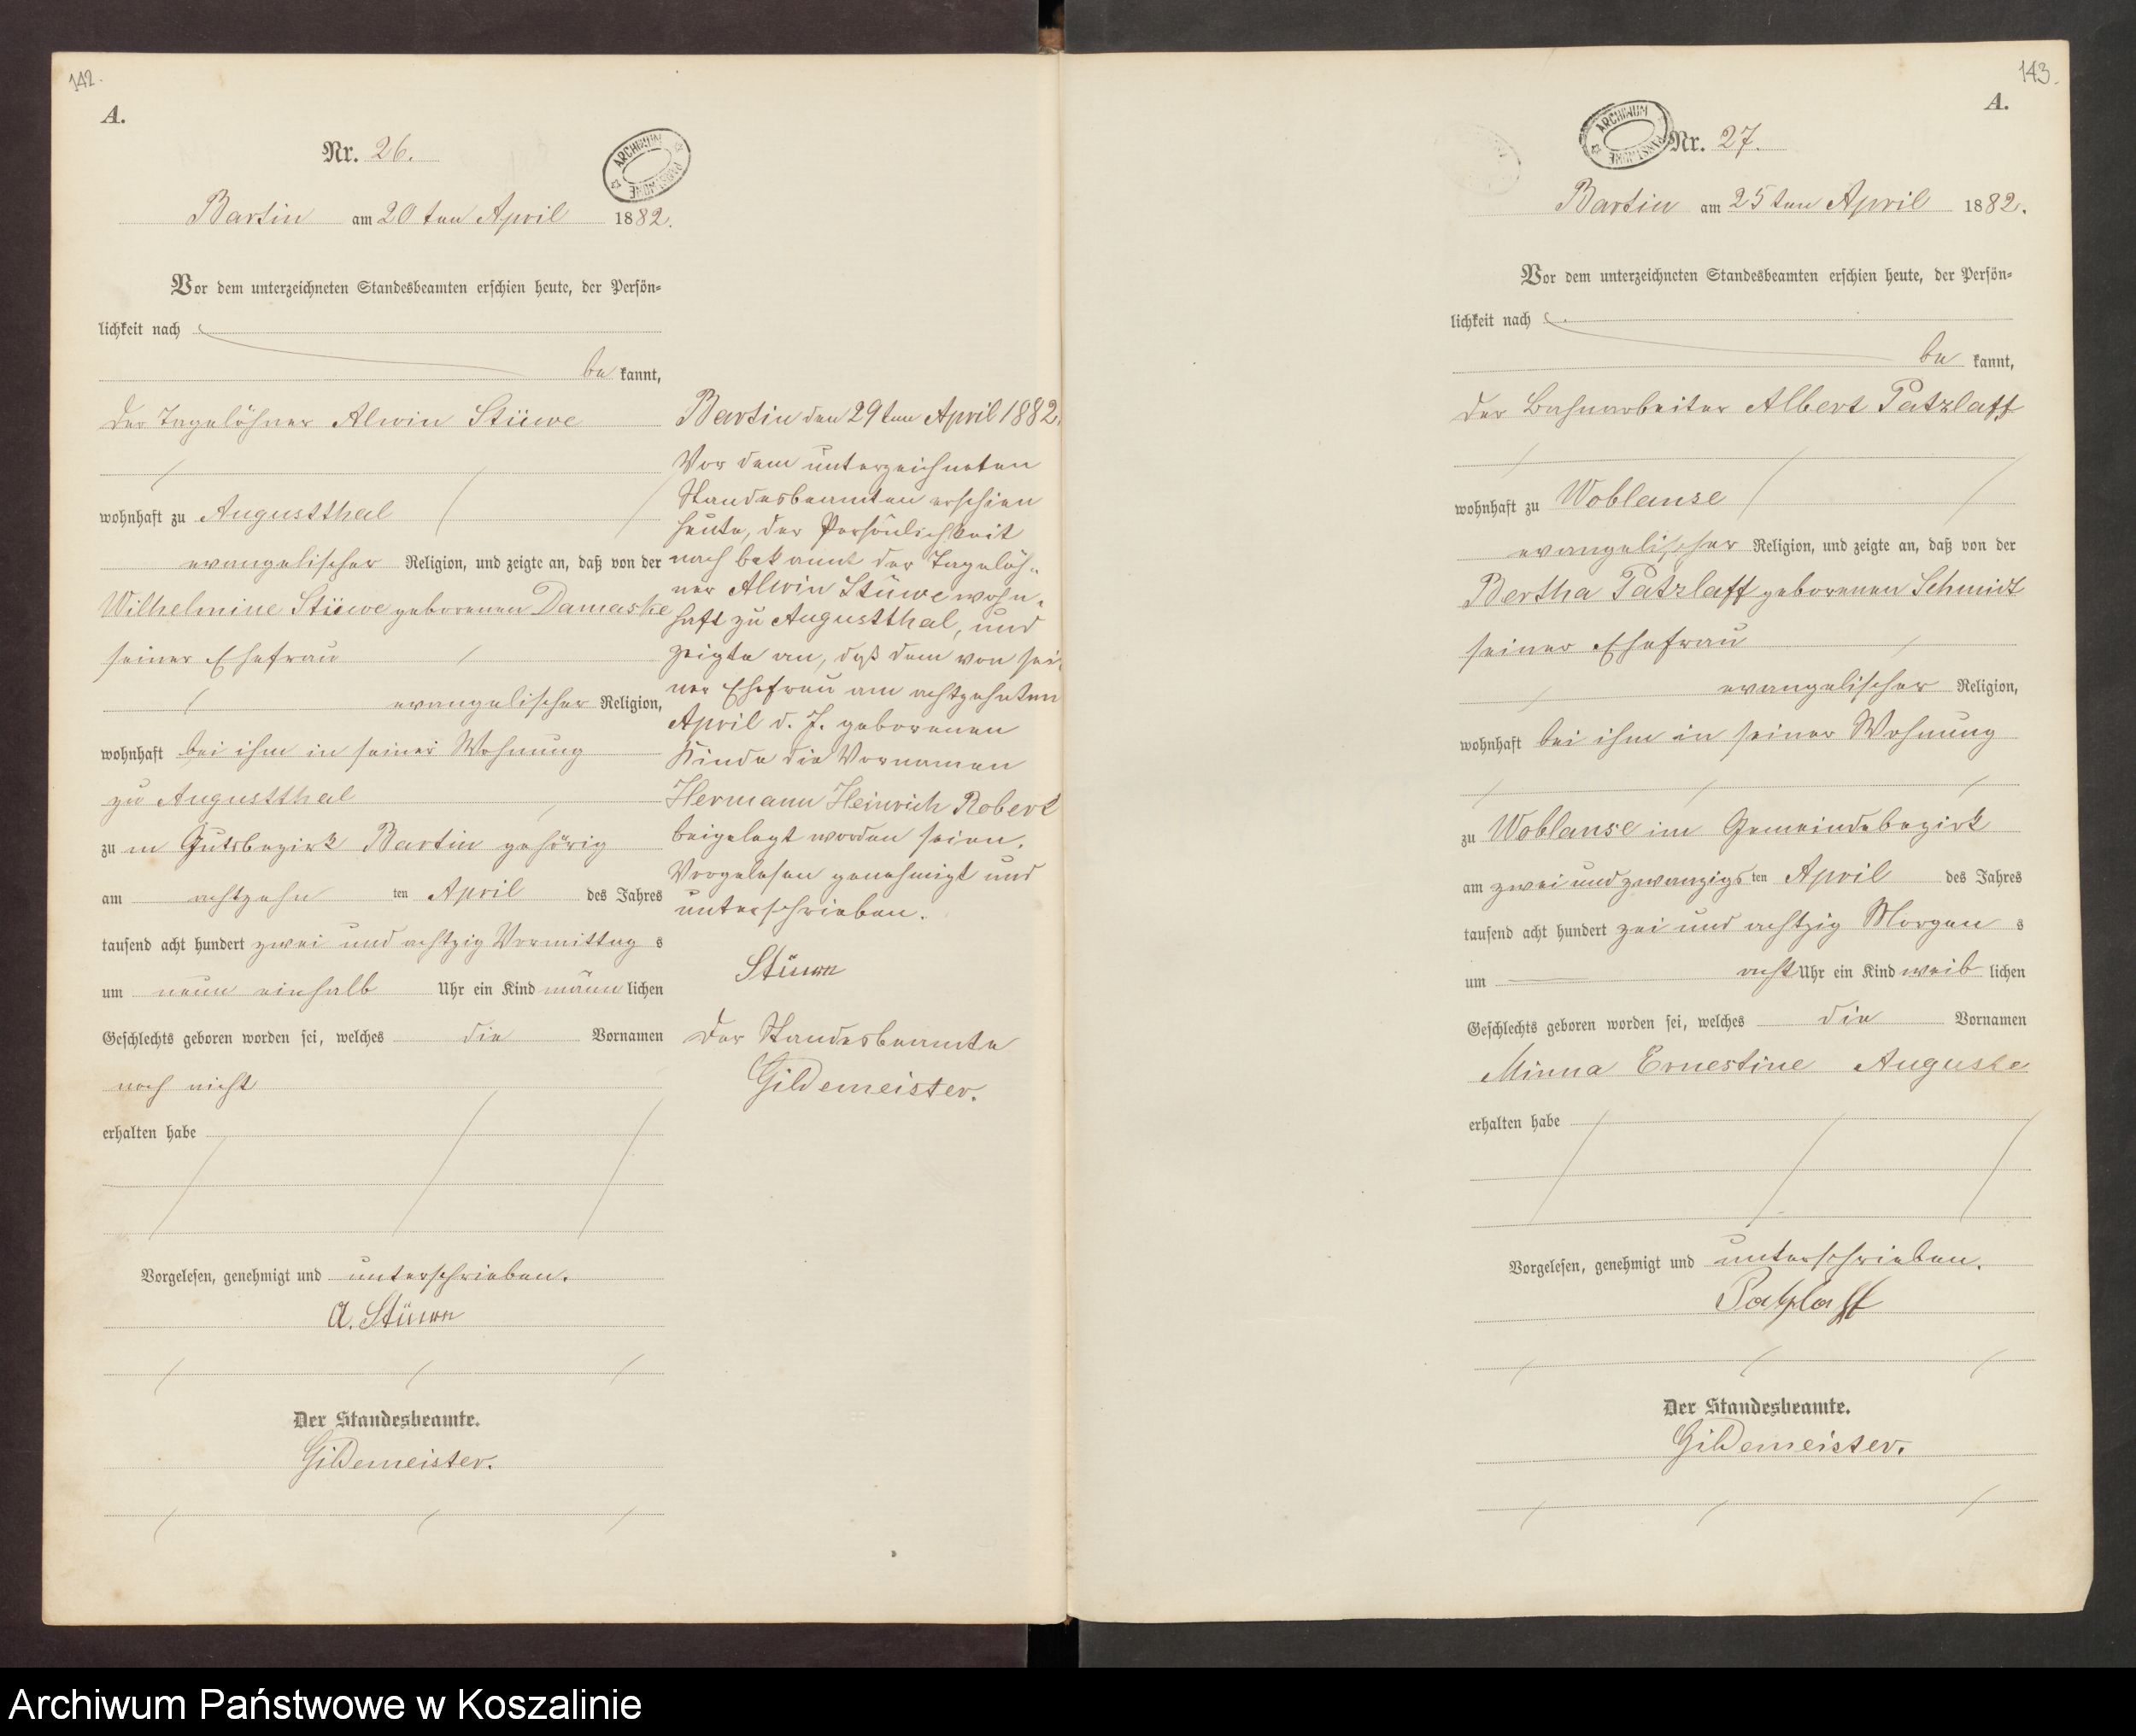 142.
A.
Nr. 26.
ARCHIWUM PAŃSTWOWE
Bartin am 20ten April 1882.
Vor dem unterzeichneten Standesbeamten erschien heute, der Persön-
lichkeit nach
be kannt,
der Tagelöhner Alwin Stüwe
wohnhaft zu Augustthal
evangelischer Religion, und zeigte an, daß von der
Wilhelmine Stüwe geborenen Damaske
seiner Ehefrau
evangelischer Religion,
wohnhaft bei ihm in seiner Wohnung
zu Augustthal
zu m Gutsbezirk Bartin gehörig
am achtzehn ten April des Jahres
tausend acht hundert zwei und achtzig Vormittag s
um neun einhalb Uhr ein Kind männ lichen
Geschlechts geboren worden sei, welches die Vornamen
noch nicht
erhalten habe
Vorgelesen, genehmigt und unterschrieben.
A. Stüwe
Der Standesbeamte.
Gildemeister.
Bartin den 29ten April 1882.
Vor dem unterzeichneten
Standesbeamten erschien
heute, der Persönlichkeit
nach bekannt der Tagelöh-
ner Alwin Stüwe wohn-
haft zu Augustthal, und
zeigte an, daß dem von sei-
ner Ehefrau am achtzehnten
April d. J. geborenen
Kinde die Vornamen
Hermann Heinrich Robert
beigelegt worden seien.
Vorgelesen genehmigt und
unterschrieben.
Stüwe
Der Standesbeamte
Gildemeister.
143.
A.
ARCHIWUM PAŃSTWOWE
Nr. 27.
Bartin am 25ten April 1882.
Vor dem unterzeichneten Standesbeamten erschien heute, der Persön-
lichkeit nach
be kannt,
der Bahnarbeiter Albert Patzlaff
wohnhaft zu Woblanse
evangelischer Religion, und zeigte an, daß von der
Bertha Patzlaff geborenen Schmidt
seiner Ehefrau
evangelischer Religion,
wohnhaft bei ihm in seiner Wohnung
zu Woblanse im Gemeindebezirk
am zwei und zwanzigs ten April des Jahres
tausend acht hundert zei und achtzig Morgen s
um acht Uhr ein Kind weib lichen
Geschlechts geboren worden sei, welches die Vornamen
Minna Ernestine Auguste
erhalten habe
Vorgelesen, genehmigt und unterschrieben.
Patzlaff
Der Standesbeamte.
Gildemeister.
Archiwum Państwowe w Koszalinie